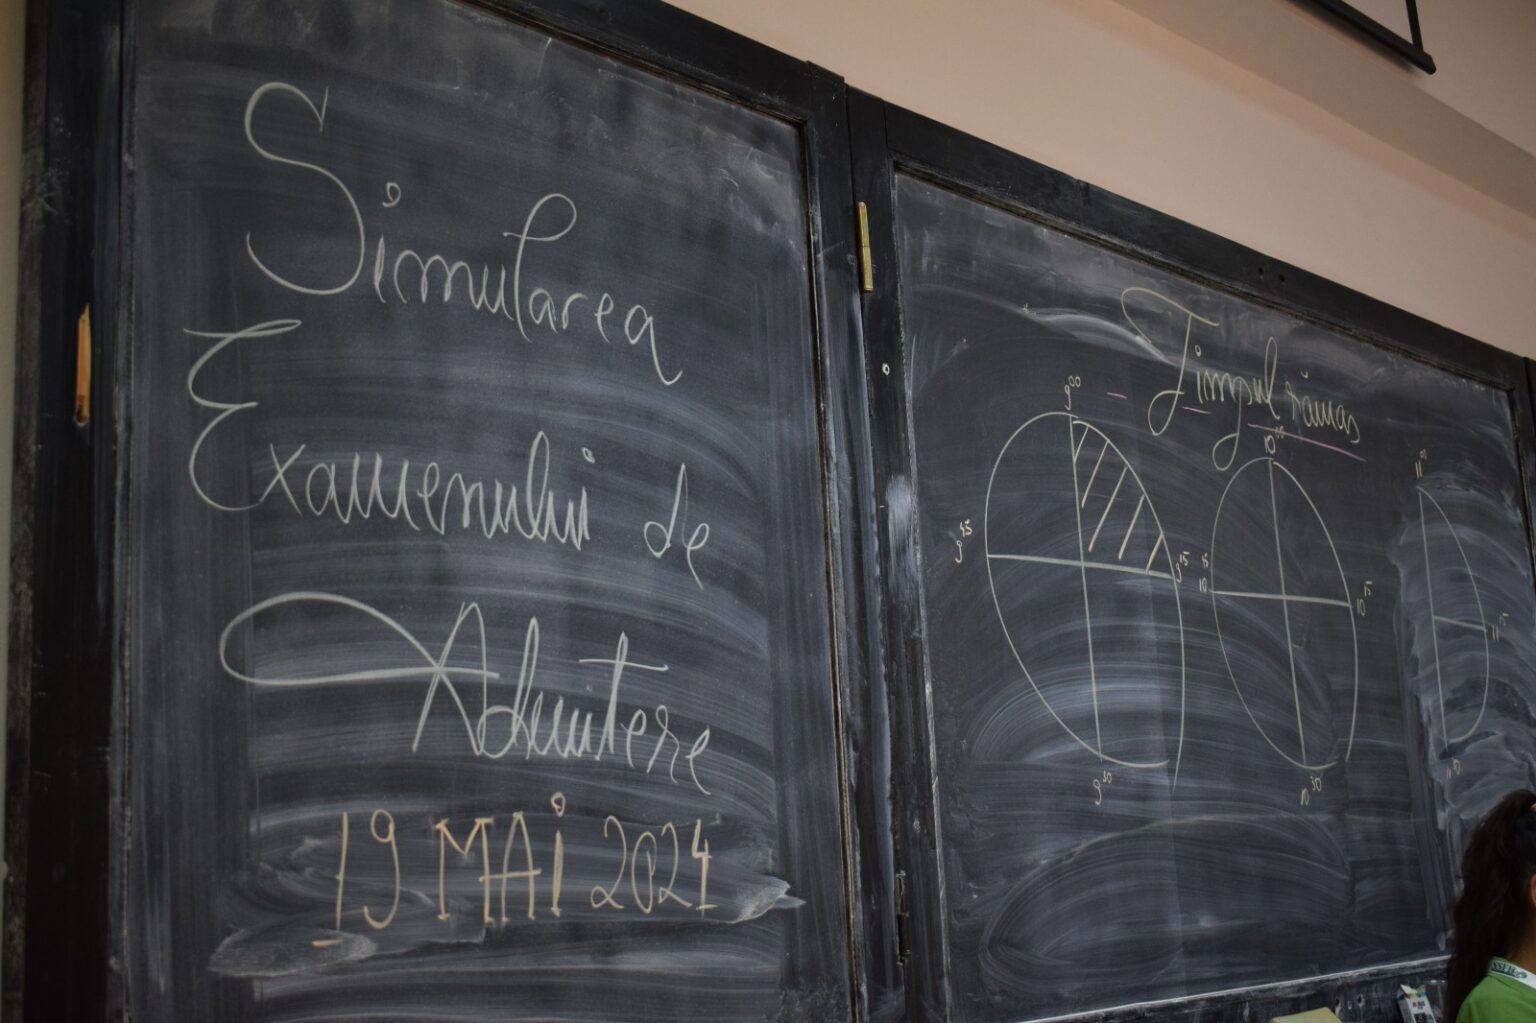 Simularea
Examenului de
Admitere
19 MAI 2024
Timpul rămas
9⁰⁰
9¹⁵
9³⁰
9⁴⁵
10⁰⁰
10¹⁵
10³⁰
11⁰⁰
11¹⁵